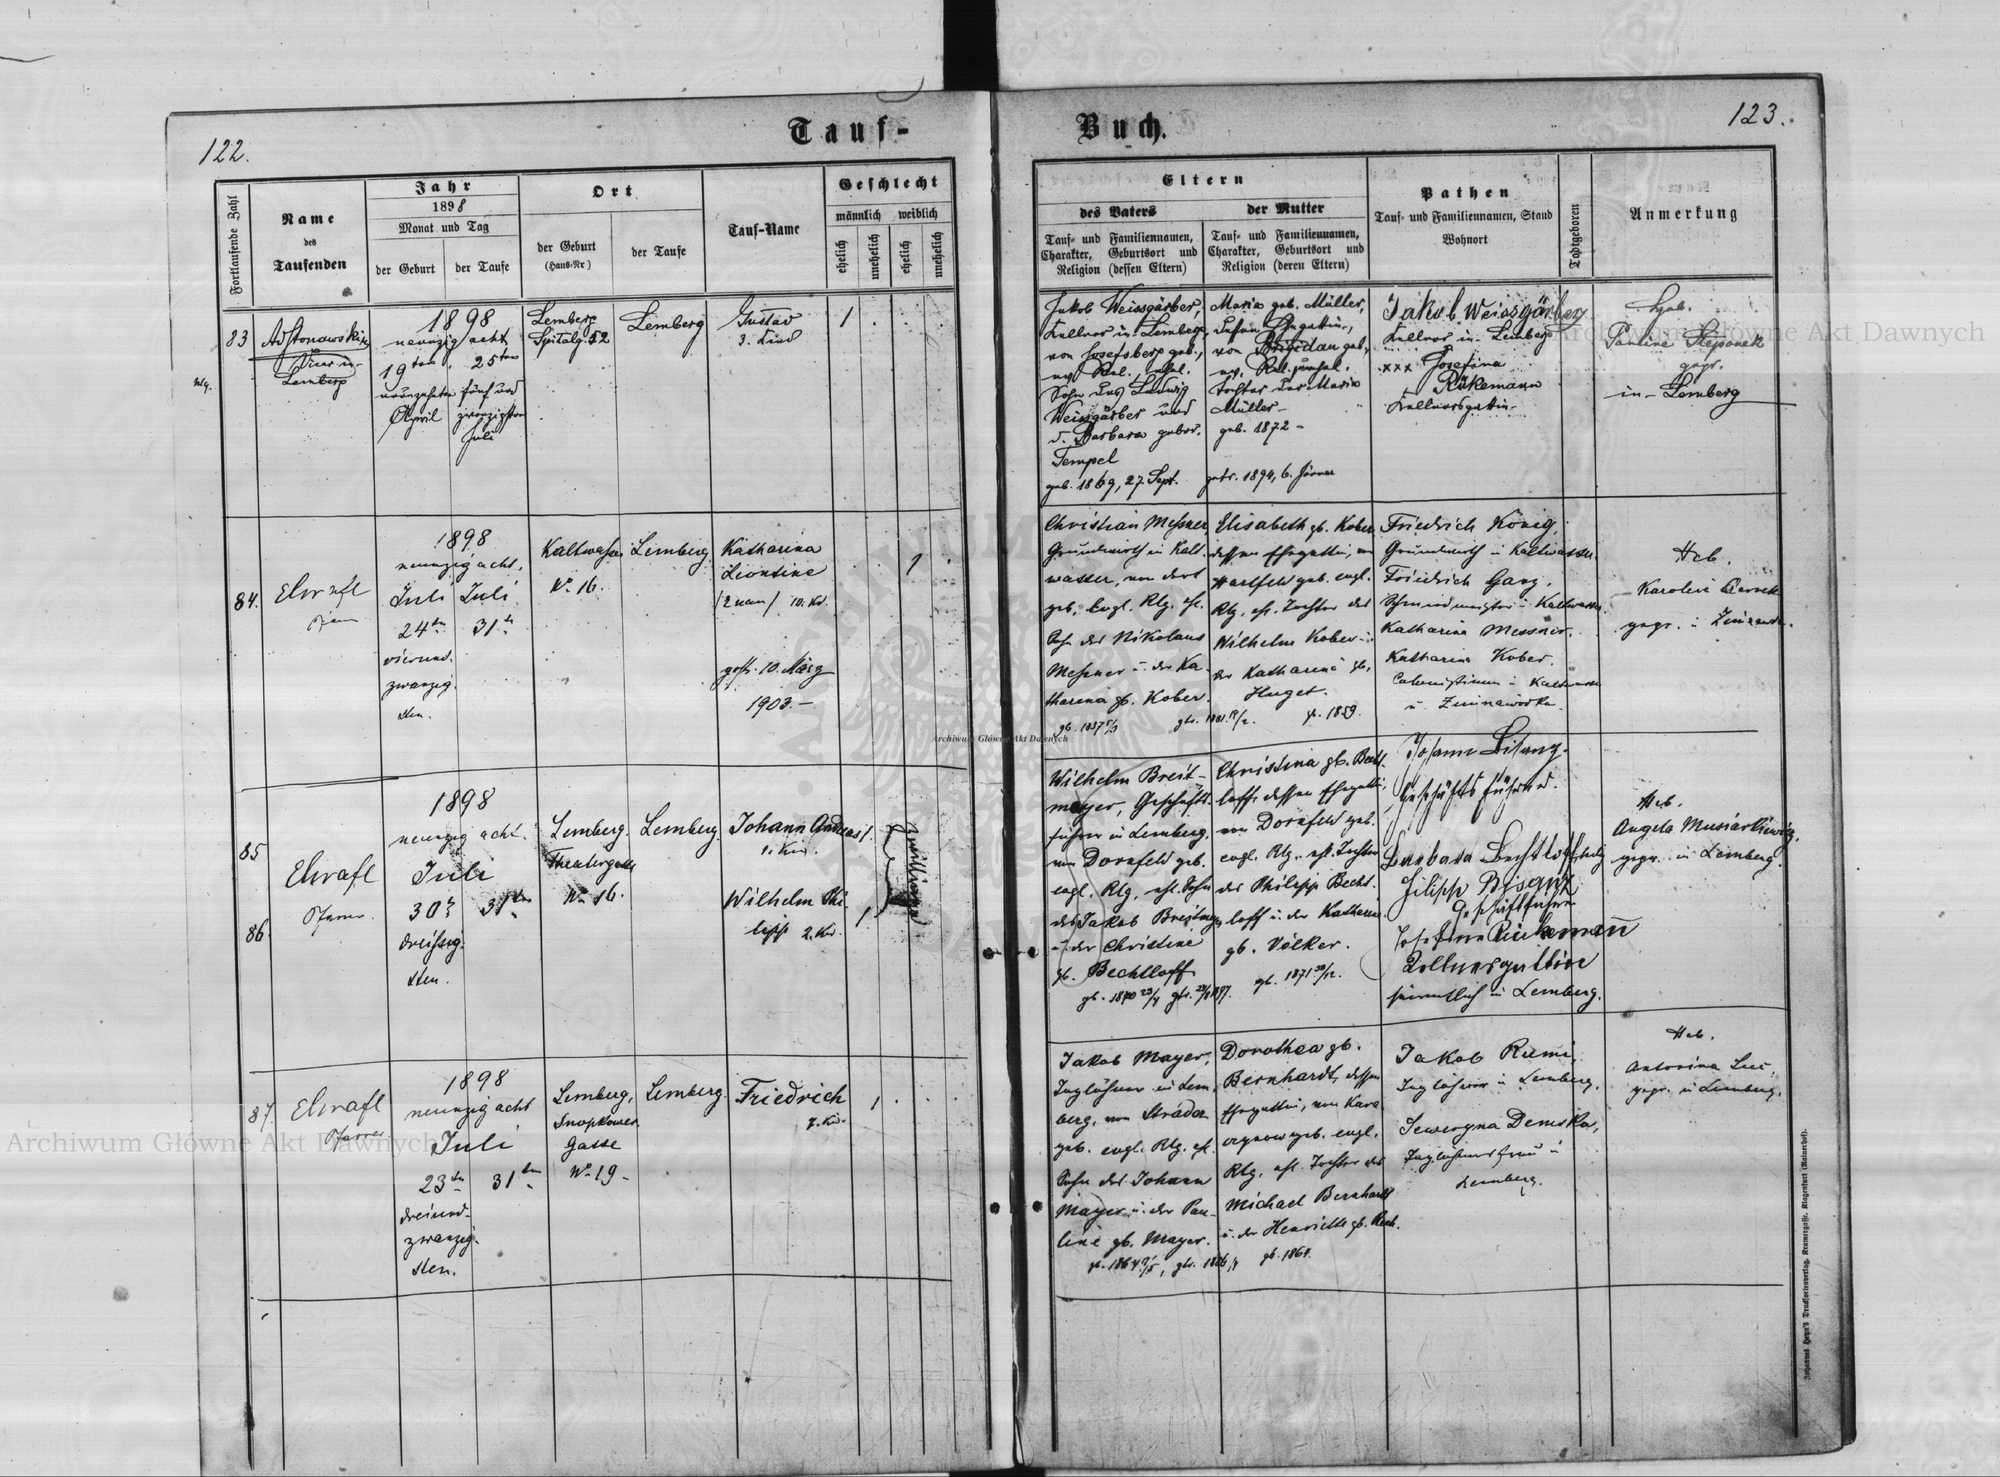 122.
Tauf-
Fortlaufende Zahl
Name
des
Taufenden
Jahr
1898
Monat und Tag
der Geburt
der Taufe
Ort
der Geburt
(Haus-Nr)
der Taufe
Tauf-Name
Geschlecht
männlich
weiblich
ehelich
unehelich
ehelich
unehelich
83
Lemberg
1898
neunzig acht
19ten 25ten
neunzehnten fünf und
April zwanzigsten
Juli
Lemberg
Spitalg. 52
Lemberg
Gustav
3. Kind
1
84.
1898
neunzig acht.
Juli Juli
24ten 31ten
vierund-
zwanzig-
sten.
Kaltwasser
No 16.
Lemberg
Katharina
Leontine
gest. 10. März
1903.-
1
85
86.
Pfarrer
1898
neunzig acht.
Juli
30ten 31ten
dreissig-
sten.
Lemberg.
Theatergasse
No 16.
Lemberg.
Johann Andreas
1. Kd.
Wilhelm Phi-
lipp 2. Kd.
1
1
Zwillinge
87.
Pfarrer
1898
neunzig acht
Juli
23ten 31ten
dreiund-
zwanzig-
sten.
Lemberg,
Snopkower
Gasse
No 19-
Lemberg.
Friedrich
7. Kd.
1
Buch.
123.
Eltern
des Vaters
Tauf- und Familiennamen,
Charakter, Geburtsort und
Religion (dessen Eltern)
der Mutter
Tauf- und Familiennamen,
Charakter, Geburtsort und
Religion (deren Eltern)
Pathen
Tauf- und Familiennamen, Stand
Wohnort
Todtgeboren
Anmerkung
Jakob Weissgärber,
Kellner in Lemberg,
von Josefsberg geb.,
ev. Rel., ehel.
Sohn des Ludwig
Weissgärber und
d. Barbara gebor.
Tempel
geb. 1869, 27. Sept.
Maria geb. Müller,
dessen Ehegattin,
von Brigidau geb.,
ev. Rel. unehel.
Tochter der Maria
Müller-
geb. 1872-
getr. 1894, 6. Jänner
Jakob Weissgärber
Kellner in Lemberg
xxx Josefina
Rükemann
Kellnersgattin-
Heb.
Pauline Stepanek
gepr.
in Lemberg
Christian Messner,
Grundwirth in Kalt-
wasser, von dort
geb. Evgl. Rlg. ehl.
Sohn des Nikolaus
Messner u. der Ka-
tharina gb. Kober.
Elisabeth gb. Kober
dessen Ehegattin, von
Hartfeld geb. evgl.
Rlg. ehl. Tochter des
Wilhelm Kober u.
der Katharina gb.
Huget.
1859.
Friedrich König,
Grundwirth in Kaltwasser.
Friedrich Ganz,
Schmiedmeister in Kaltwasser.
Katharina Messner,
Katharina Kober.
Colonistinnen in Kaltwasser
u. Zimnawódka.
Heb.
Karoline
gepr. in
Wilhelm Breit-
mayer, Geschäfts-
führer in Lemberg,
von Dornfeld geb.
evgl. Rlg. ehl. Sohn
des Jakob Breitmayer
u. der Christine
gb. Bechtloff
Christina gb. Becht-
loff, dessen Ehegattin,
von Dornfeld geb.
evgl. Rlg. ehl. Tochter
des Philipp Becht-
loff u. der Katharina
gb. Völker.
Johann Bisanz.
Geschäftsführer.
Barbara Bechtloff, ledig
Filipp Bisanz
Geschäftsführer
Josefina Rückemann
Kellnersgattin
sämmtlich in Lemberg.
Heb.
Angela Musiatkiewicz,
gepr. in Lemberg.
Jakob Mayer,
Taglöhner in Lem-
berg, von Stradcz
geb. evgl. Rlg. ehl.
Sohn des Johann
Mayer u. der Pau-
line gb. Mayer.
Dorothea gb.
Bernhardt, dessen
Ehegattin, von
geb. evgl.
Rlg. ehl. Tochter des
Michael Bernhardt
u. der Henriette gb.
gb. 1864.
Jakob Rumi,
Taglöhner in Lemberg.
Seweryna Demska,
Taglöhnersfrau in
Lemberg.
Heb.
Antonina
gepr. in Lemberg.
Johannes Heyn's Drucksortenverlag, Kramergasse, Klagenfurt (Rainerhof).
Archiwum Główne Akt Dawnych
Archiwum Główne Akt Dawnych
Archiwum Główne Akt Dawnych